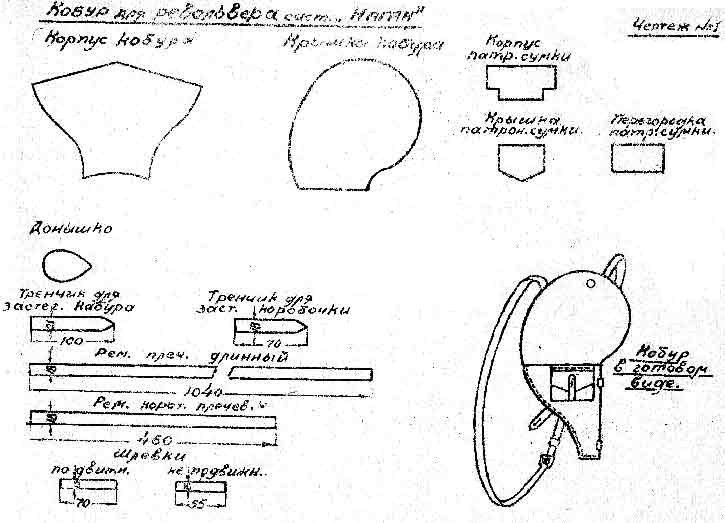 Кобур для револьвера сист. „Наган"
Чертеж №1
Корпус кобура
Крышка кобура
Корпус
патр. сумки
Крышка
патрон. сумки.
Перегородка
патр. сумки.
Донышко
Тренчик для
застег. кабура
100
Тренчик для
заст. коробочки
18
70
Рем. плеч. длинный
18
1040
Рем. корот. плечев.
18
460
Шлевки
подвижн.
не подвижн.
70
55
Кобур
в готовом
виде.